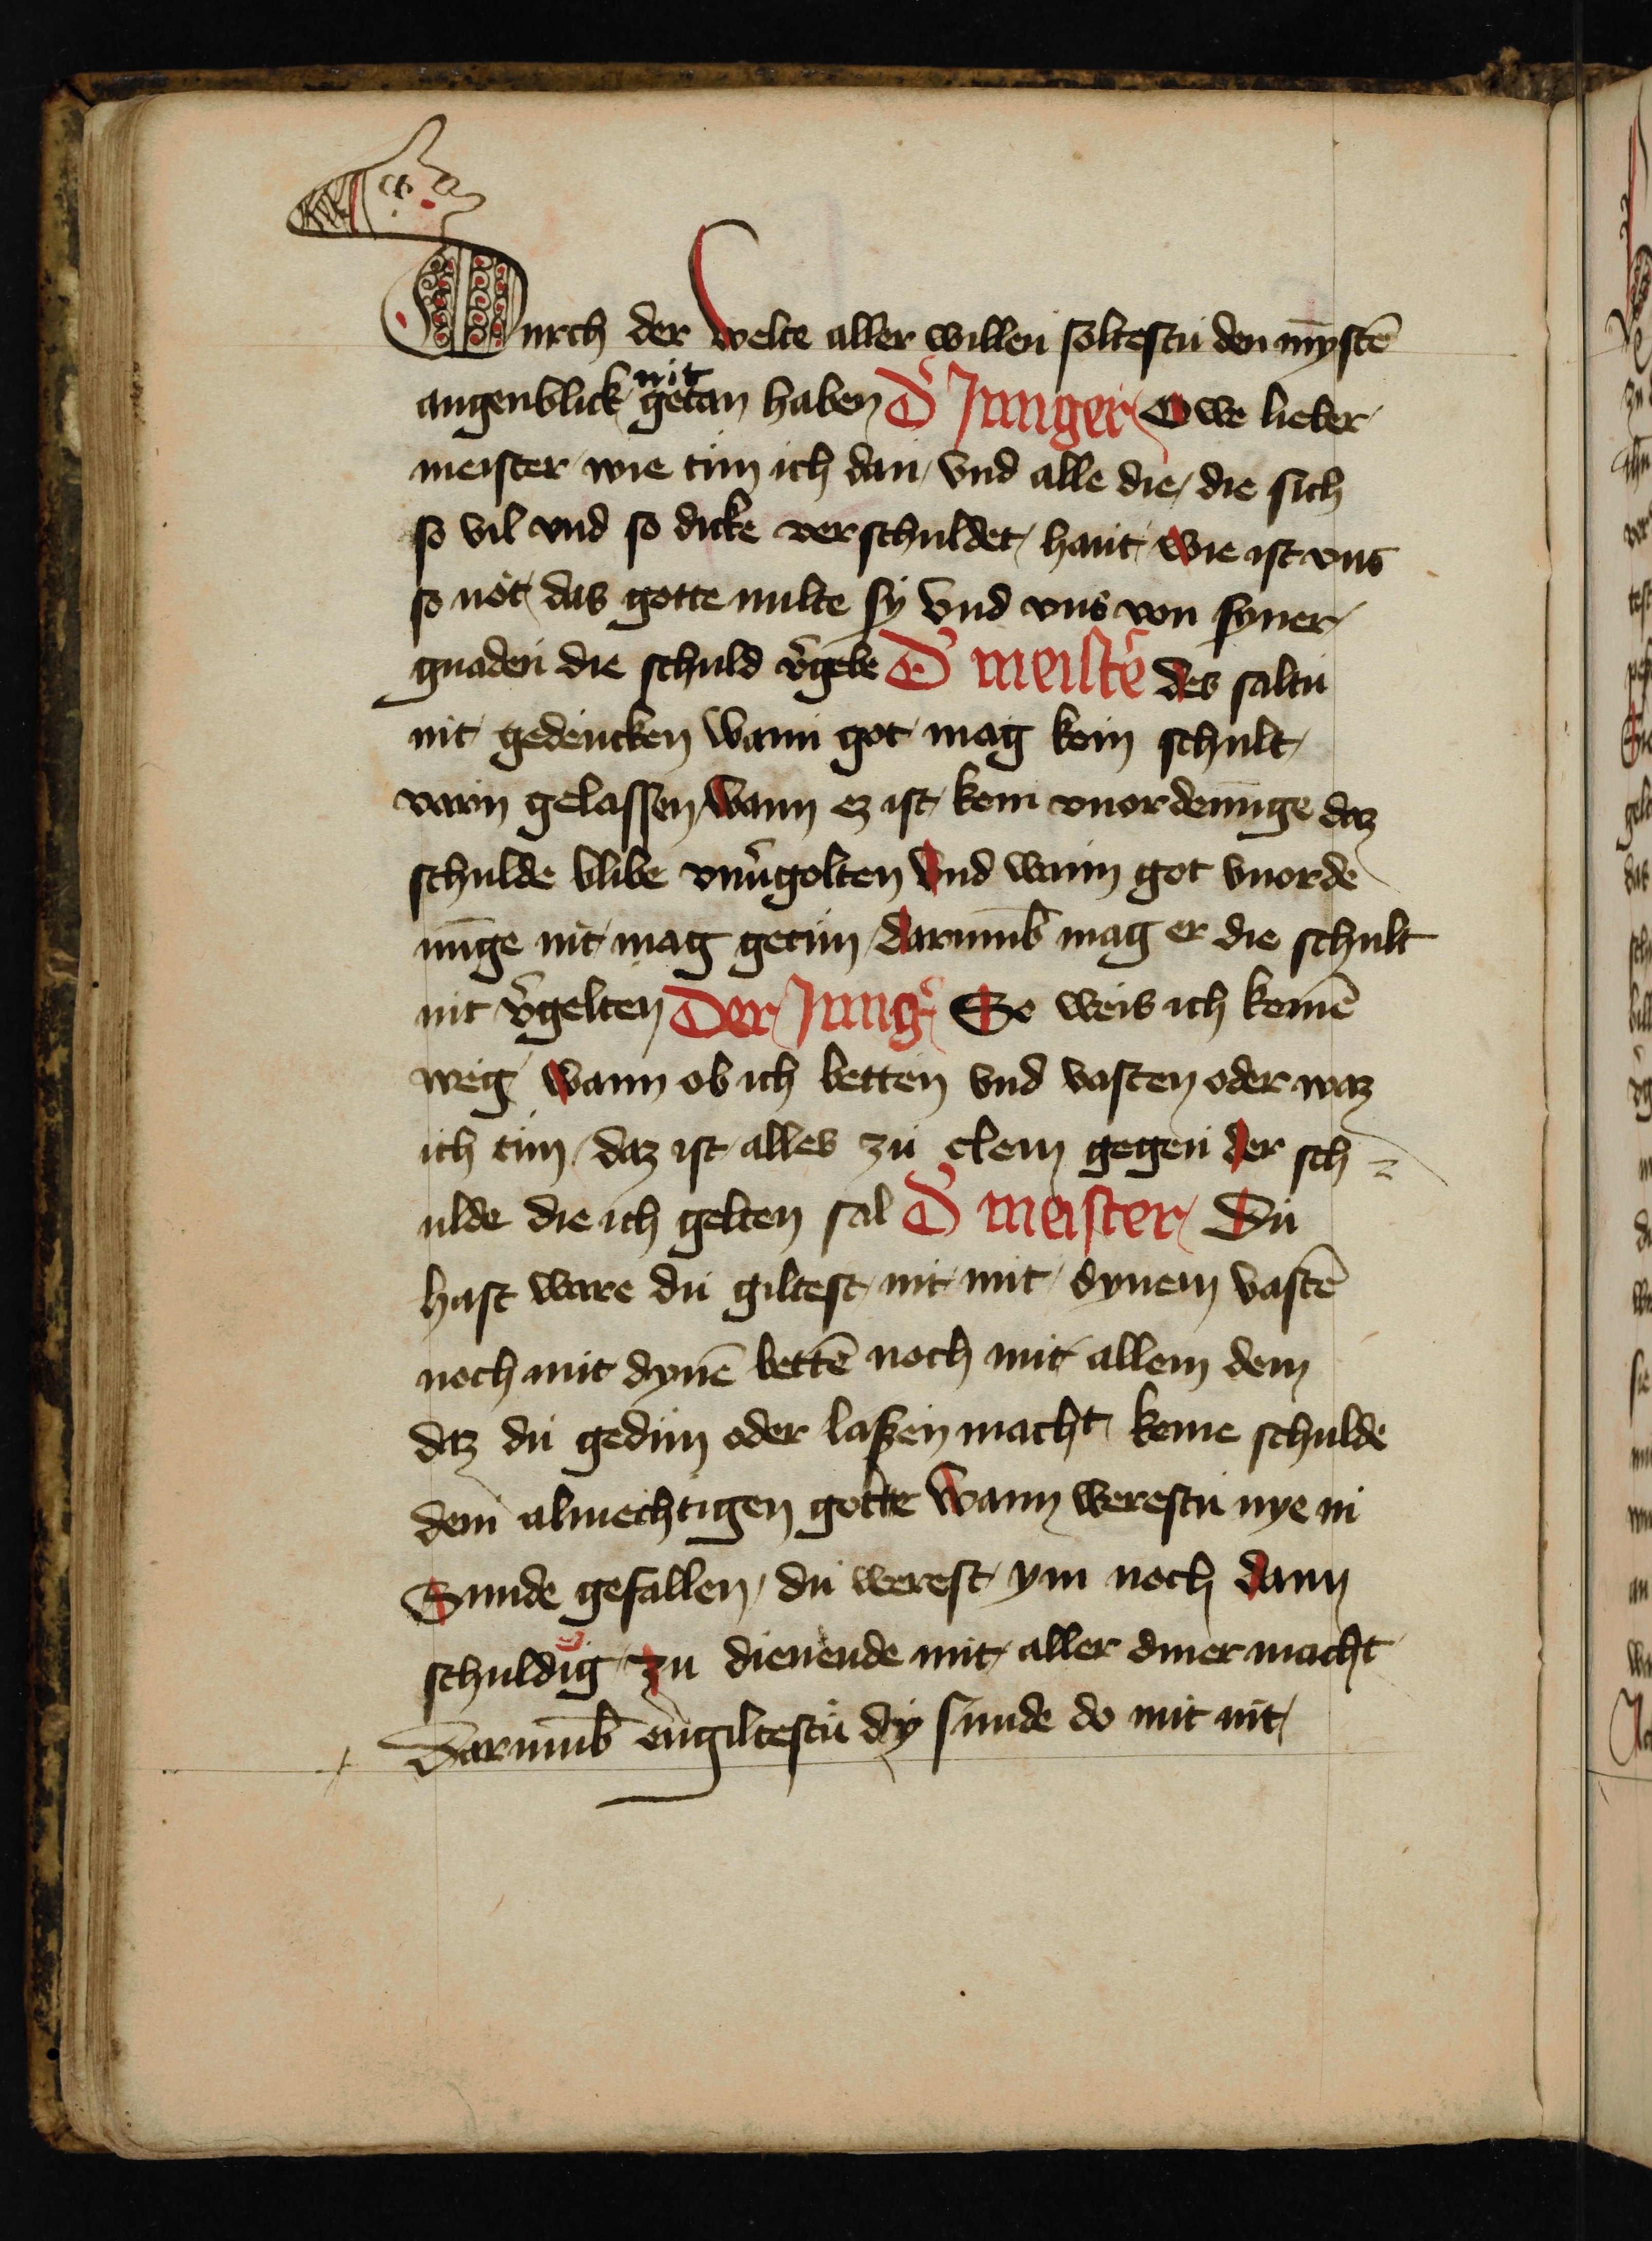 Durch der welte aller willen soltestu den mȳstē
augenblick nit getan haben D̛ Junger Owe lieber
meister wie tun ich dan vnd alle die die sich
so vil vnd so dicke verschuldet hant wie ist vns
so not das gotte milte sy vnd vns von syner
gnaden die schuld v̛gebe D̛ meist̛ des saltu
nit gedencken wann got mag kein schult
varn gelassen wann ez ist kein vnordenunge daz
schulde blibe vnưgolten vnd wann got vnorde
nu̅ge nit mag getun darumb̄ mag er die schult
nit v̛gelten Der Jung̛ So weis ich keinē
weg wann ob ich betten vnd vasten oder waz
ich tun daz ist alles zu clein gegen der sch=
ulde die ich gelten sal D̛ meister Du
hast ware du giltest nit mit dynem vastē
noch mit dynē bettē noch mit allem dem
daz du gedun oder laßen macht keine schulde
dem almechtigen gotte wann werestu nye in
Sunde gefallen du werest ym noch dann
schuldig zu dienende mit aller diner macht
Darumb̄ engiltestu dy sunde do mit nit